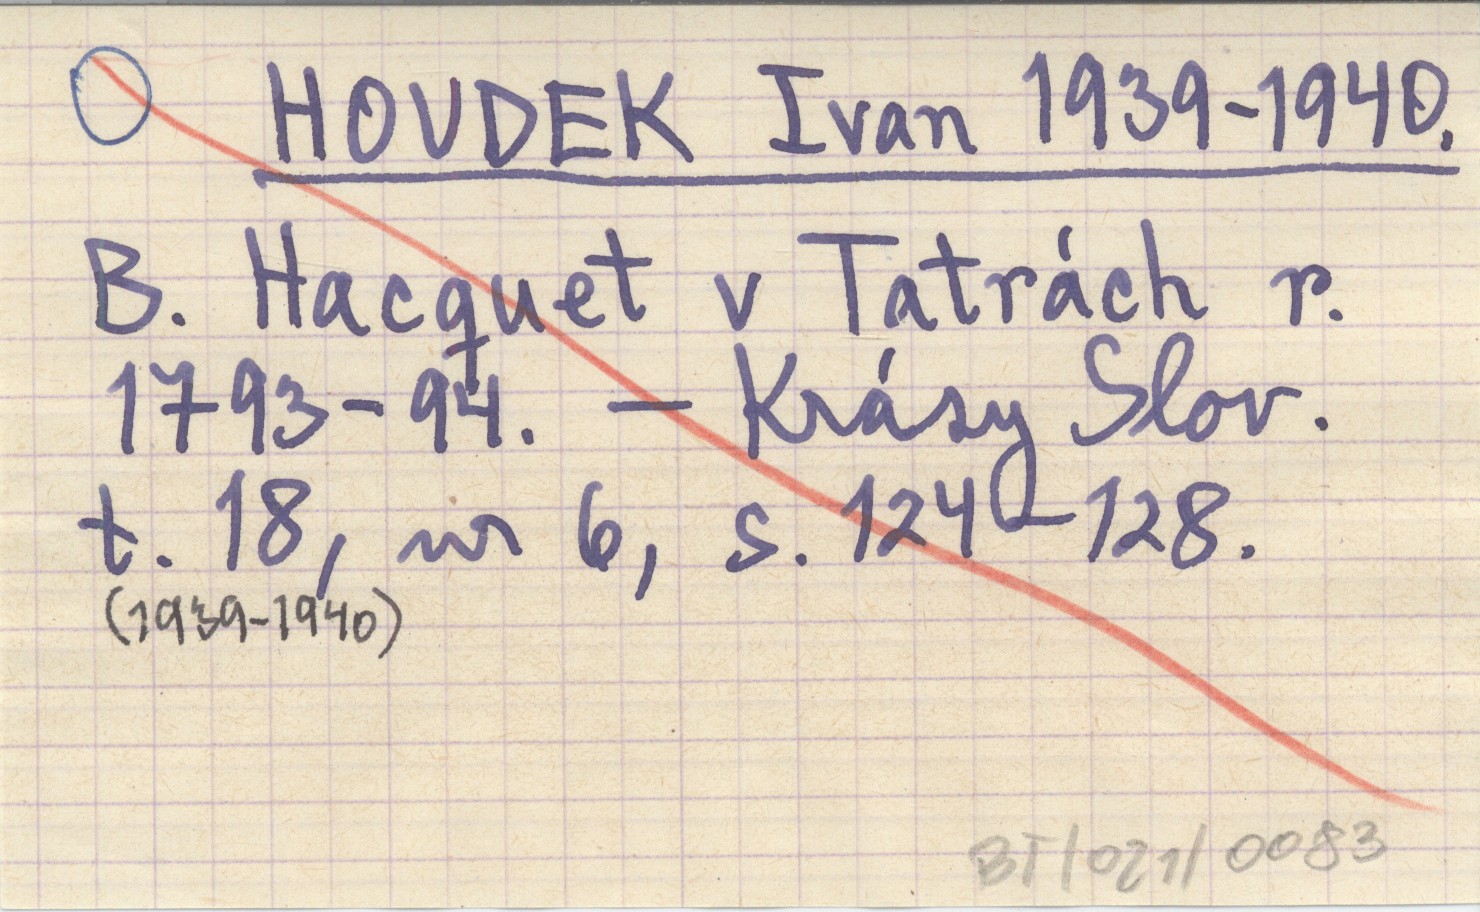 HOUDEK Ivan 1939-1940.
B. Hacquet v Tatrách r.
1793-94. — Krásy Slov.
t. 18, nr 6, s. 124-128.
(1939-1940)
BT/021/0083